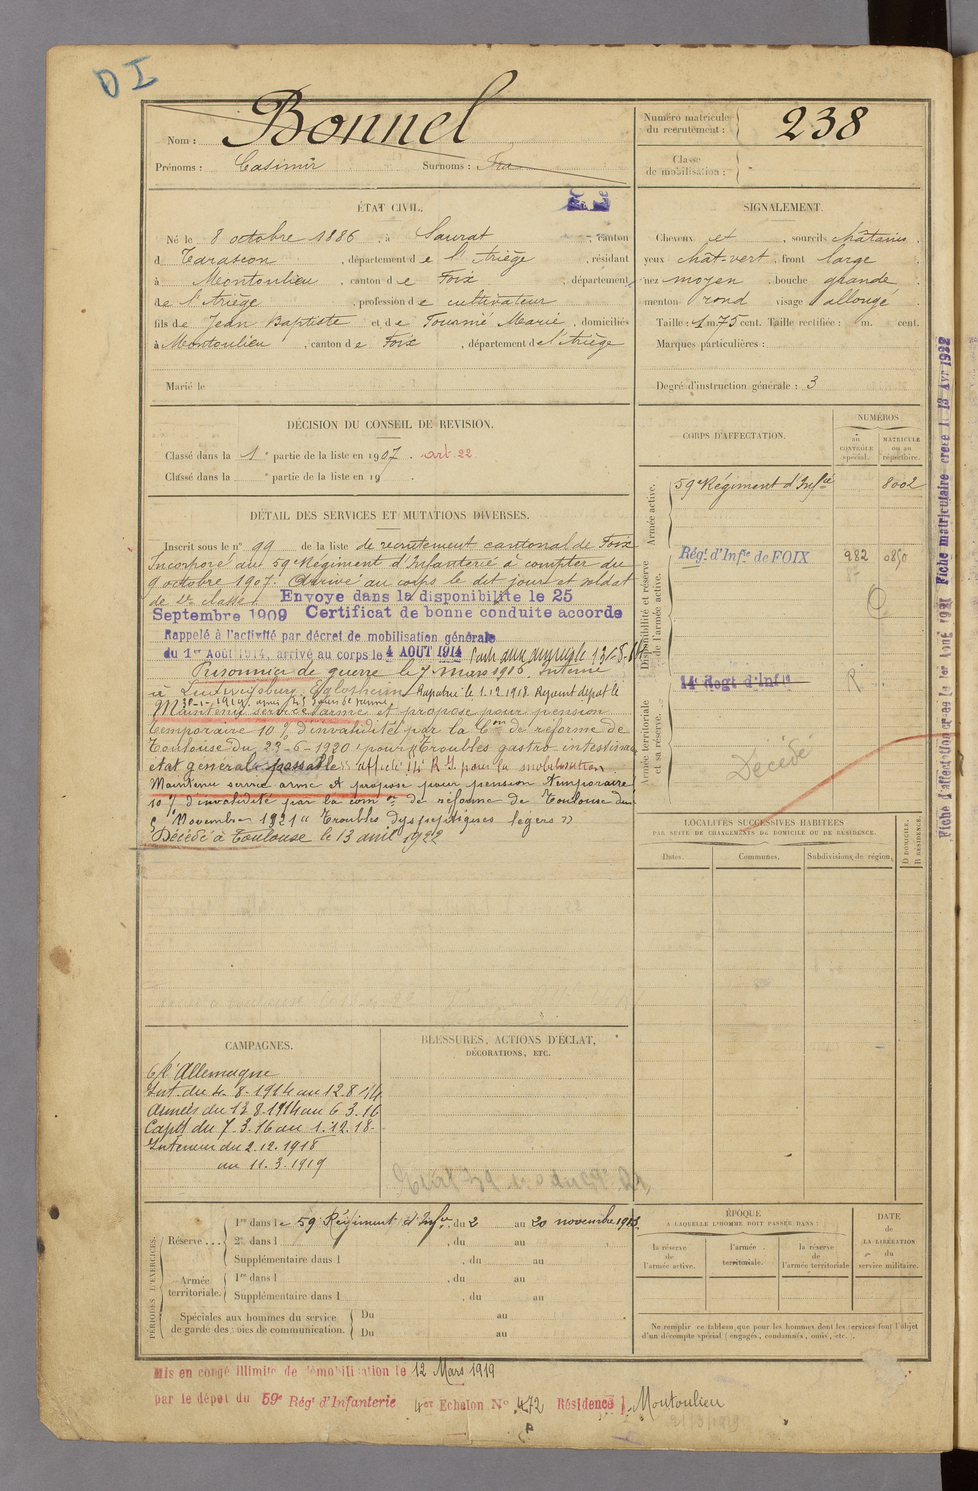 DI
Nom : Bonnel
Prénoms : Casimir Surnoms :
Numéro matricule du recrutement : 238
Classe de mobilisation :
ÉTAT CIVIL.
Né le 8 octobre 1886, à Saurat, canton
d Tarascon, département de l'Ariège, résidant
à Montoulieu, canton de Foix, département
de l'Ariège, profession de cultivateur
fils de Jean Baptiste et de Tournié Marie, domiciliés
à Montoulieu, canton de Foix, département de l'Ariège
Marié le
SIGNALEMENT.
Cheveux et, sourcils châtains.
yeux chât-vert, front large
nez moyen, bouche grande
menton rond visage allongé.
Taille : 1 m 75 cent. Taille rectifiée : m. cent.
Marques particulières :
Degré d'instruction générale : 3
DÉCISION DU CONSEIL DE REVISION.
Classé dans la 1e partie de la liste en 1907. art 22
Classé dans la e partie de la liste en 19
DÉTAIL DES SERVICES ET MUTATIONS DIVERSES.
Inscrit sous le n° 99 de la liste de recrutement cantonal de Foix
Incorporé au 59e Régiment d'Infanterie à compter du
9 octobre 1907. Arrivé au corps le dit jour et soldat
de 2e classe. Envoye dans la disponibilite le 25
Septembre 1909 Certificat de bonne conduite accorde
Rappelé à l'activité par décret de mobilisation générale
du 1er Août 1914, arrivé au corps le 4 AOUT 1914 Parti aux armées le 13-8-14
Prisonnier de guerre le 7 mars 1916. Interné
à Ludwigsburg Eglosheim Rapatrié le 1.12.1918. Rejoint dépôt le
Maintenu service armé et proposé pour pension
temporaire 10 % d'invalidité par la Con de réforme de
Toulouse du 23-6-1920 "pour Troubles gastro intestinaux
état général passable" affecté 14e R.I. pour la mobilisation
Maintenu service armé et proposé pour pension temporaire
10 % d'invalidité par la comon de réforme de Toulouse du
5 Novembre 1921 "Troubles dyspeptiques légers"
Décédé à Toulouse le 13 avril 1922
CORPS D'AFFECTATION.
NUMÉROS
au CONTRÔLE spécial.
MATRICULE ou au répertoire.
Armée active.
59e Régiment d'Infie 8002
Disponibilité et réserve de l'armée active.
Régt d'Infie de FOIX 982 0850
Armée territoriale et sa réserve.
14e Regt d'Infie R.
Décédé
LOCALITÉS SUCCESSIVES HABITÉES
PAR SUITE DE CHANGEMENTS DE DOMICILE OU DE RÉSIDENCE.
Dates. Communes. Subdivisions de région. D DOMICILE. R RÉSIDENCE.
Fiche matriculaire créée le 13 Avr 1922
CAMPAGNES.
Ct l'Allemagne
Int. du 4-8-1914 au 12.8.14
Armées du 13.8.1914 au 6.3.16
Capté du 7.3.16 au 1.12.18.
Intérieur du 2.12.1918
au 11.3.1919
BLESSURES, ACTIONS D'ÉCLAT,
DÉCORATIONS, ETC.
PÉRIODES D'EXERCICES.
Réserve...
1re dans le 59e Régiment d'Infie, du 2 au 20 novembre 1913.
2e dans l, du au
Supplémentaire dans l, du au
Armée territoriale.
1re dans l, du au
Supplémentaire dans l, du au
Spéciales aux hommes du service
de garde des voies de communication.
Du au
Du au
ÉPOQUE
A LAQUELLE L'HOMME DOIT PASSER DANS :
la réserve de l'armée active.
l'armée territoriale.
la réserve de l'armée territoriale
DATE de LA LIBÉRATION du service militaire.
Ne remplir ce tableau que pour les hommes dont les services font l'objet
d'un décompte spécial (engagés, condamnés, omis, etc.).
Mis en congé illimité de démobilisation le 12 Mars 1919
par le dépôt du 59e Régt d'Infanterie 4er Echelon No 472 Résidence Montoulieu